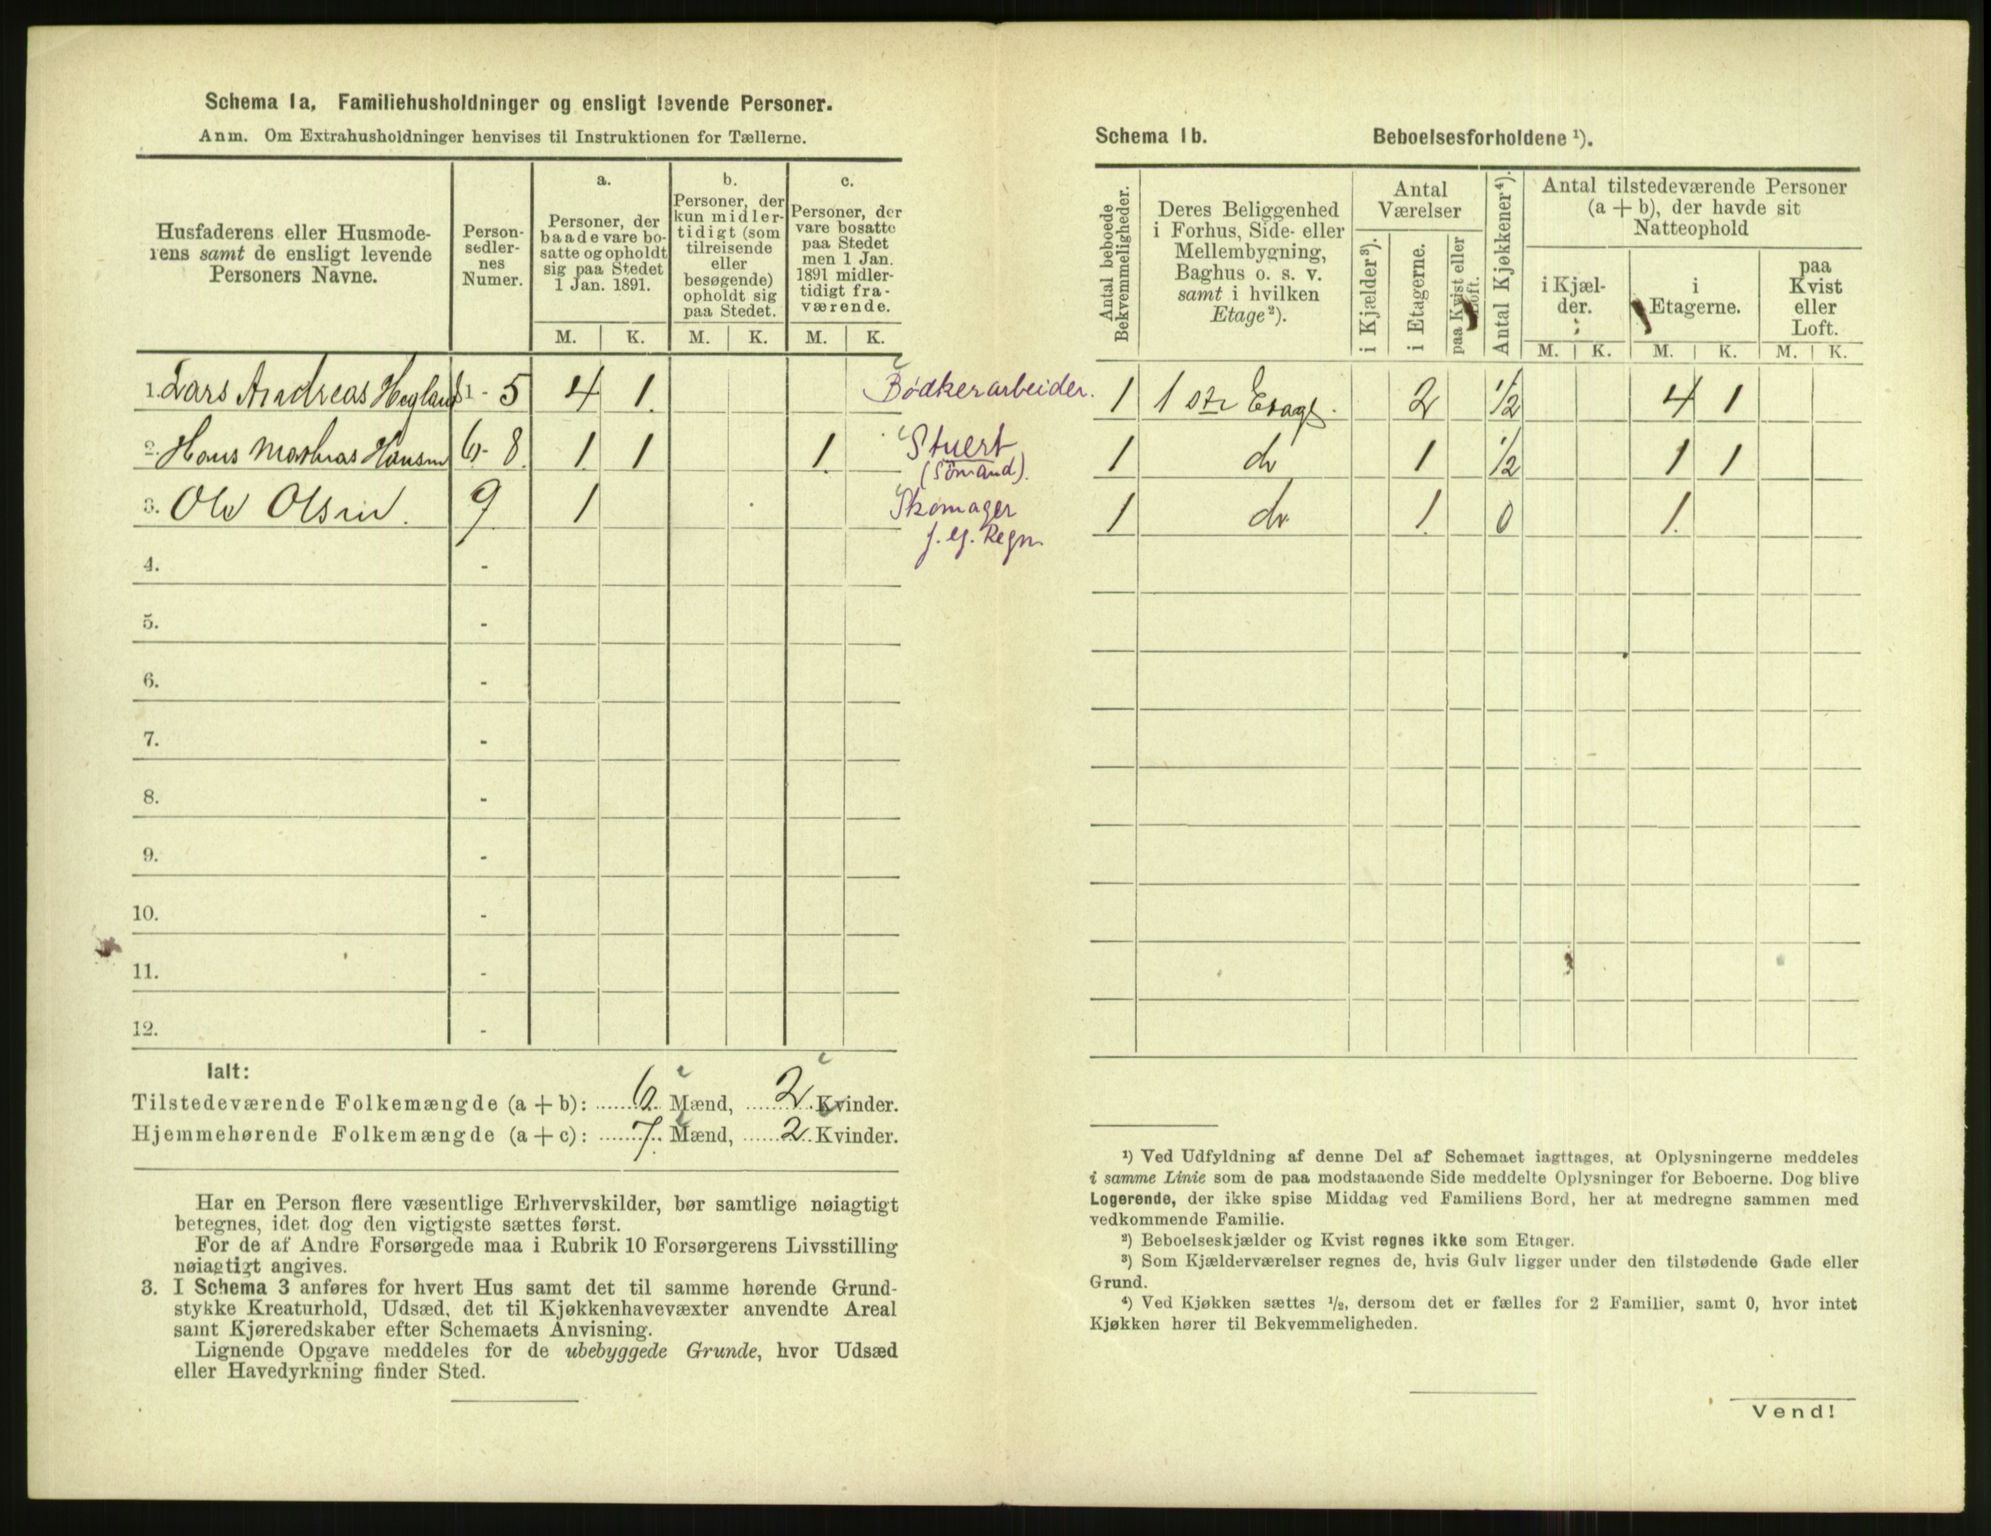 Schema 1a. Familiehusholdninger og ensligt levende Personer.
Anm. Om Extrahusholdninger henvises til Instruktionen for Tællerne.
Husfaderens eller Husmode-
rens samt de ensligt levende
Personers Navne.
Person-
sedler-
nes
Numer.
a.
Personer, der
baade vare bo-
satte og opholdt
sig paa Stedet
1 Jan. 1891.
M. K.
b.
Personer, der
kun midler-
tidigt (som
tilreisende
eller
besøgende)
opholdt sig
paa Stedet.
M. K.
c.
Personer, der
vare bosatte
paa Stedet
men 1 Jan.
1891 midler-
tidigt fra-
værende.
M. K.
1. Lars Andreas Hegland 1 - 5 4 1. Bödkerarbeider.
2. Hans Mathias Hansen 6 - 8 1 1 1. Stuert
(Sömand).
3. Ole Olsen. 9 1 Skomager
f. eg. Regn.
4. -
5. -
6. -
7. -
8. -
9. -
10. -
11. -
12. -
Ialt:
Tilstedeværende Folkemængde (a + b): 6 Mænd, 2 Kvinder.
Hjemmehørende Folkemængde (a + c): 7. Mænd, 2 Kvinder.
Har en Person flere væsentlige Erhvervskilder, bør samtlige nøiagtigt
betegnes, idet dog den vigtigste sættes først.
For de af Andre Forsørgede maa i Rubrik 10 Forsørgerens Livsstilling
nøiagtigt angives.
3. I Schema 3 anføres for hvert Hus samt det til samme hørende Grund-
stykke Kreaturhold, Udsæd, det til Kjøkkenhavevæxter anvendte Areal
samt Kjøreredskaber efter Schemaets Anvisning.
Lignende Opgave meddeles for de ubebyggede Grunde, hvor Udsæd
eller Havedyrkning finder Sted.
Schema 1b. Beboelsesforholdene ¹).
Antal beboede
Bekvemmeligheder.
Deres Beliggenhed
i Forhus, Side- eller
Mellembygning,
Baghus o. s. v.
samt i hvilken
Etage ²).
Antal
Værelser
i Kjælder ³).
i Etagerne.
paa Kvist eller
Loft.
Antal Kjøkkener ⁴).
Antal tilstedeværende Personer
(a + b), der havde sit
Natteophold
i Kjæl-
der.
i
Etagerne.
paa
Kvist
eller
Loft.
M. K. M. K. M. K.
1 1 ste Etage. 2 1/2 4 1
1 do 1 1/2 1 1
1 do 1. 0 1.
¹) Ved Udfyldning af denne Del af Schemaet iagttages, at Oplysningerne meddeles
i samme Linie som de paa modstaaende Side meddelte Oplysninger for Beboerne. Dog blive
Logerende, der ikke spise Middag ved Familiens Bord, her at medregne sammen med
vedkommende Familie.
²) Beboelseskjælder og Kvist regnes ikke som Etager.
³) Som Kjælderværelser regnes de, hvis Gulv ligger under den tilstødende Gade eller
Grund.
⁴) Ved Kjøkken sættes ½, dersom det er fælles for 2 Familier, samt 0, hvor intet
Kjøkken hører til Bekvemmeligheden.
Vend!